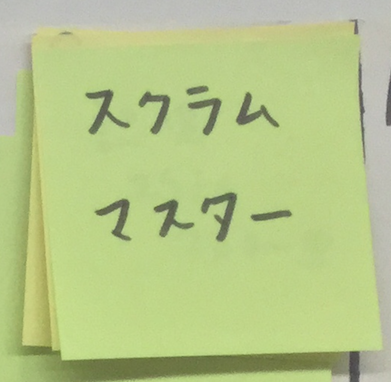 スクラム
マスター